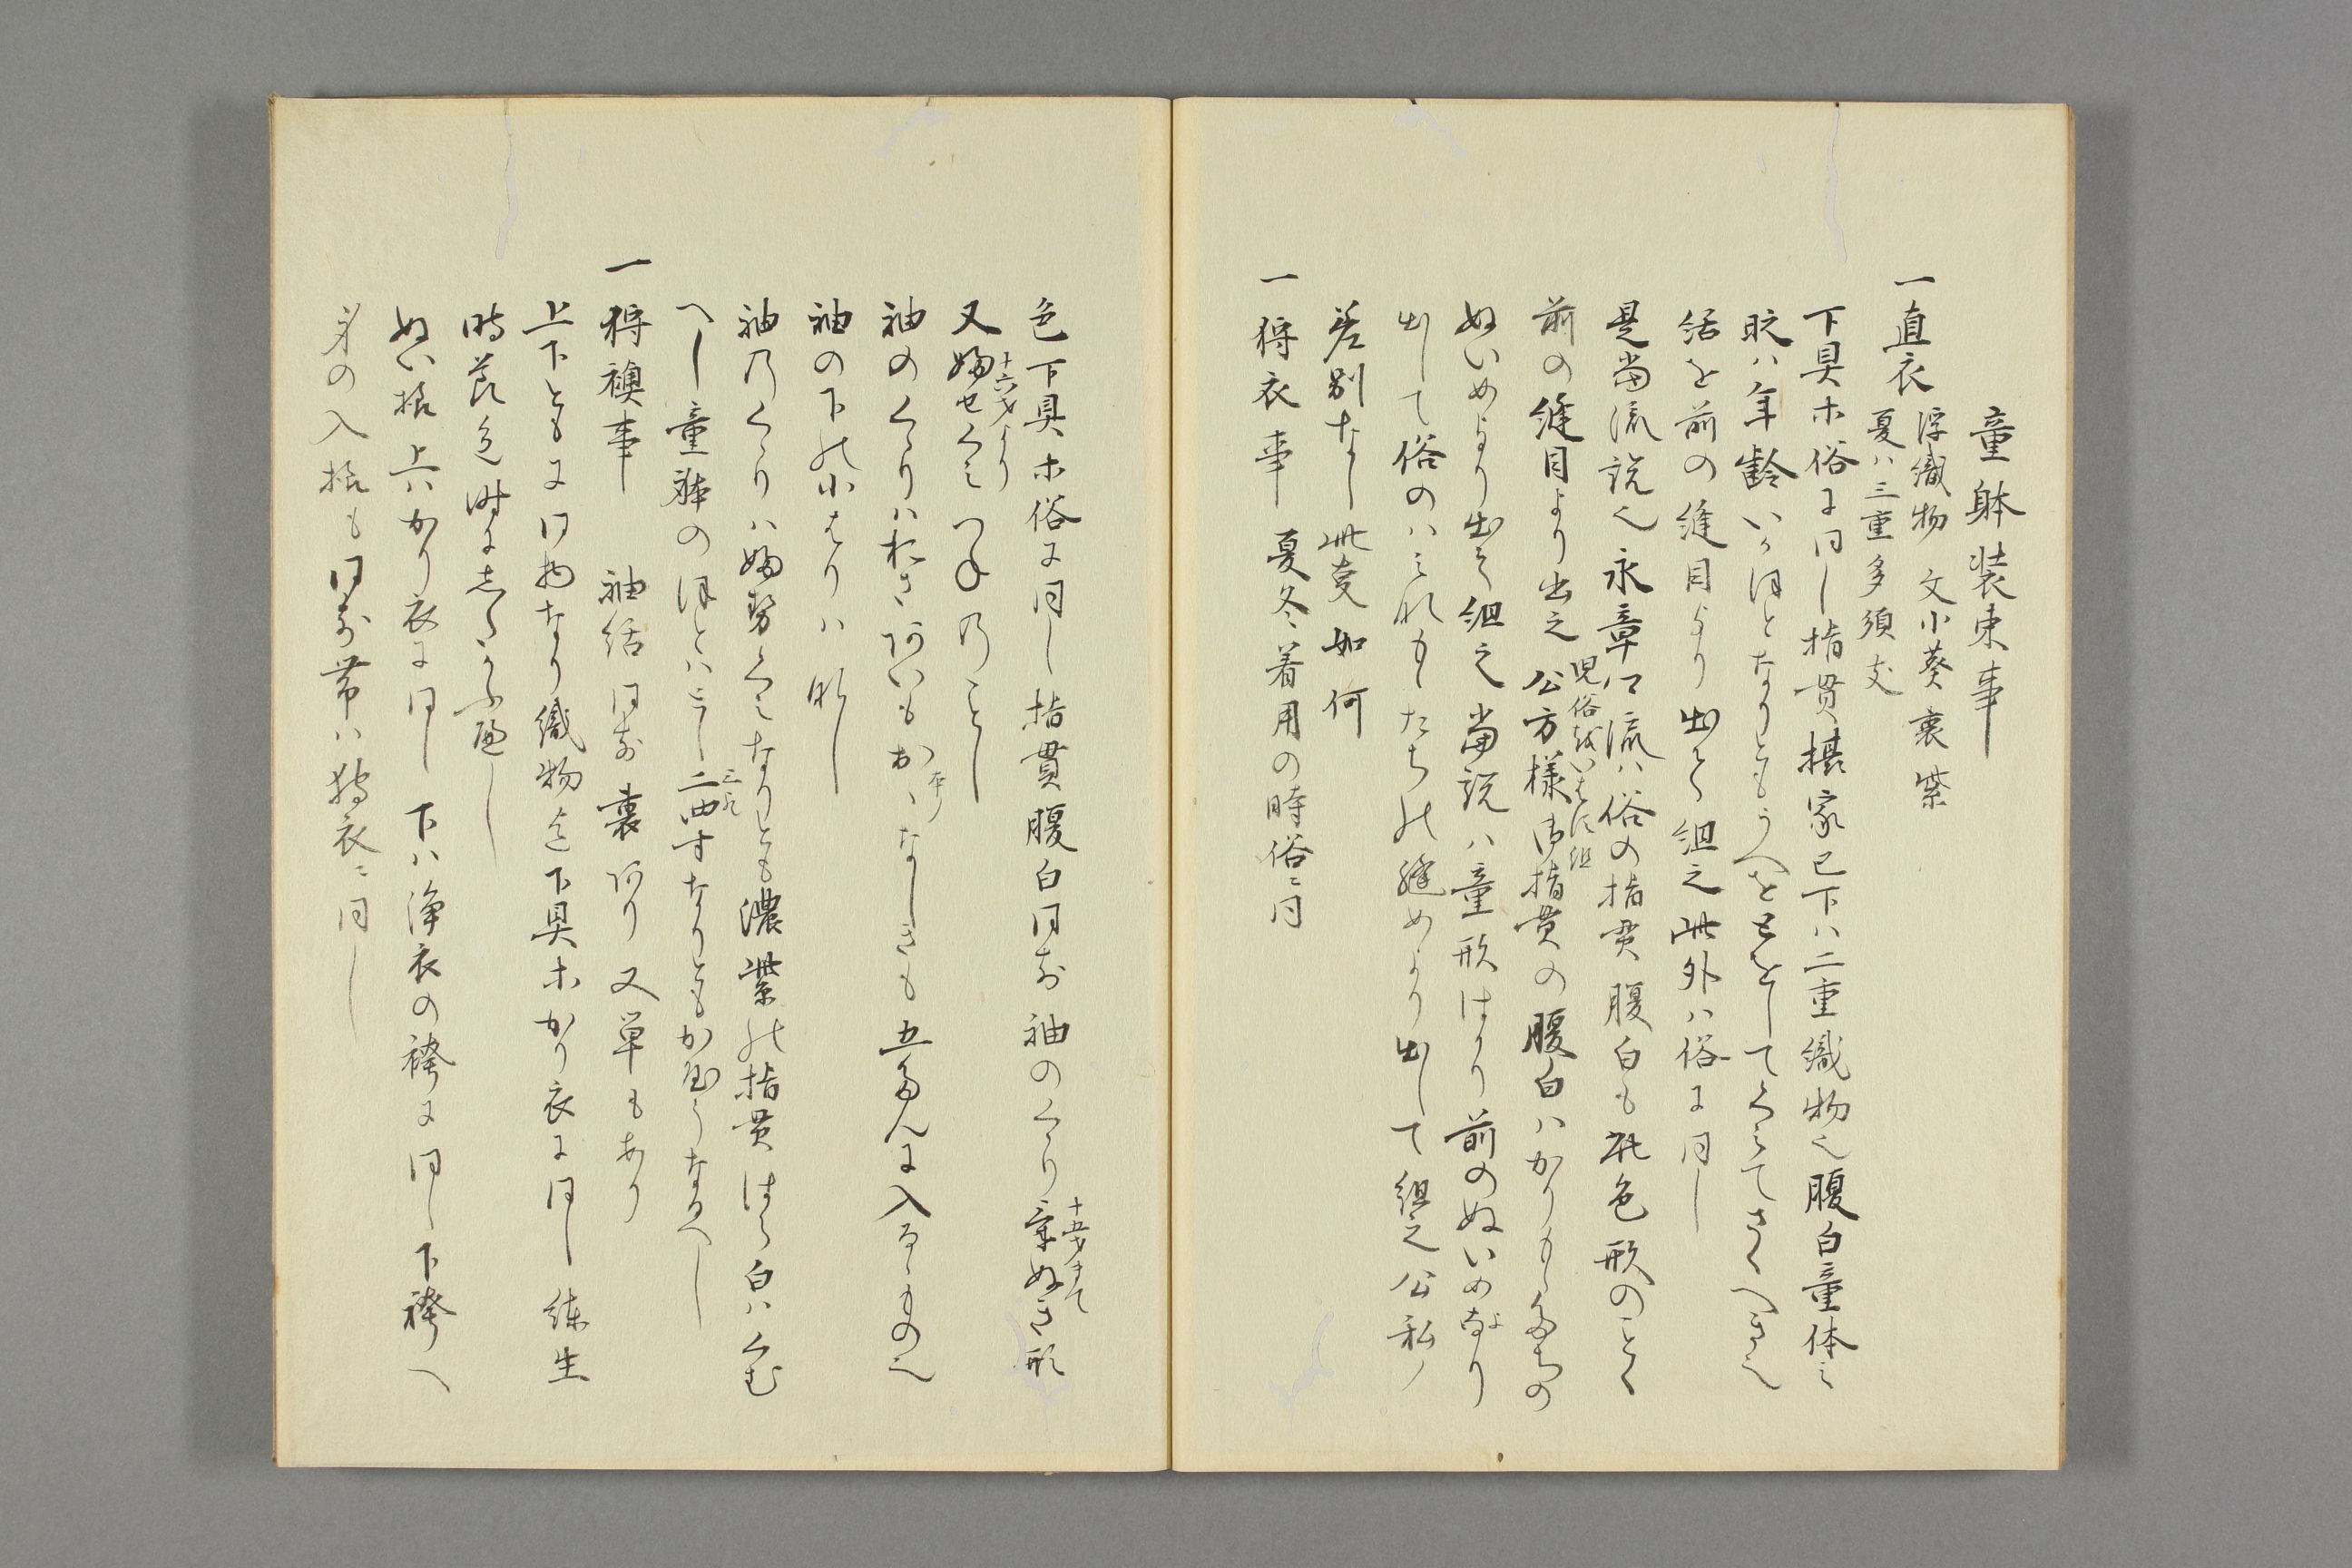 童躰装束事
一直衣 浮織物 文小葵 裏紫
夏ハ三重多須支
下具ホ俗ニ同し指貫摂家已下ハ二重織物也腹白童体之
時ハ年齢いかほとなりともうへをとをしてくみてさくへき也
結を前の縫目より出て組之此外ハ俗ニ同し
是当流説也永章口流ハ俗の指貫腹白も花色形のことく
児俗おいはに組
前の縫目より出之公方様御指貫の腹白ハかりもゝたちの
ぬいめより出て組之当説ハ童形はかり前のぬいめより
出して俗のハみなもたちの縫めより出して組之公私ノ
差別なし此変如何
一狩衣事 夏冬着用の時俗ニ同
色下具ホ俗ニ同し指貫腹白同前袖のくゝり童ぬき形
十五才まて
十六才より
又婦せくみつねのことし
袖のくゝりハねさ阿いもかゝなしきも五多んに入るゝもの也
袖の下の小はりハ那し
袖乃くゝりハ婦勢くみなりとも濃紫の指貫はら白ハくむ
へし童躰のほとハこし二四寸なりともか多うなるへし
三九
一狩襖事 袖結同前裏阿り又単もあり
上下ともニ同物なり織物迄下具ホかり衣ニ同し練生
時節迄時ニしたかふ遍し
ぬい様上ハかり衣ニ同し下ハ浄衣の袴ニ同し下袴ヘ
身の入様も同前帯ハ狩衣ニ同し